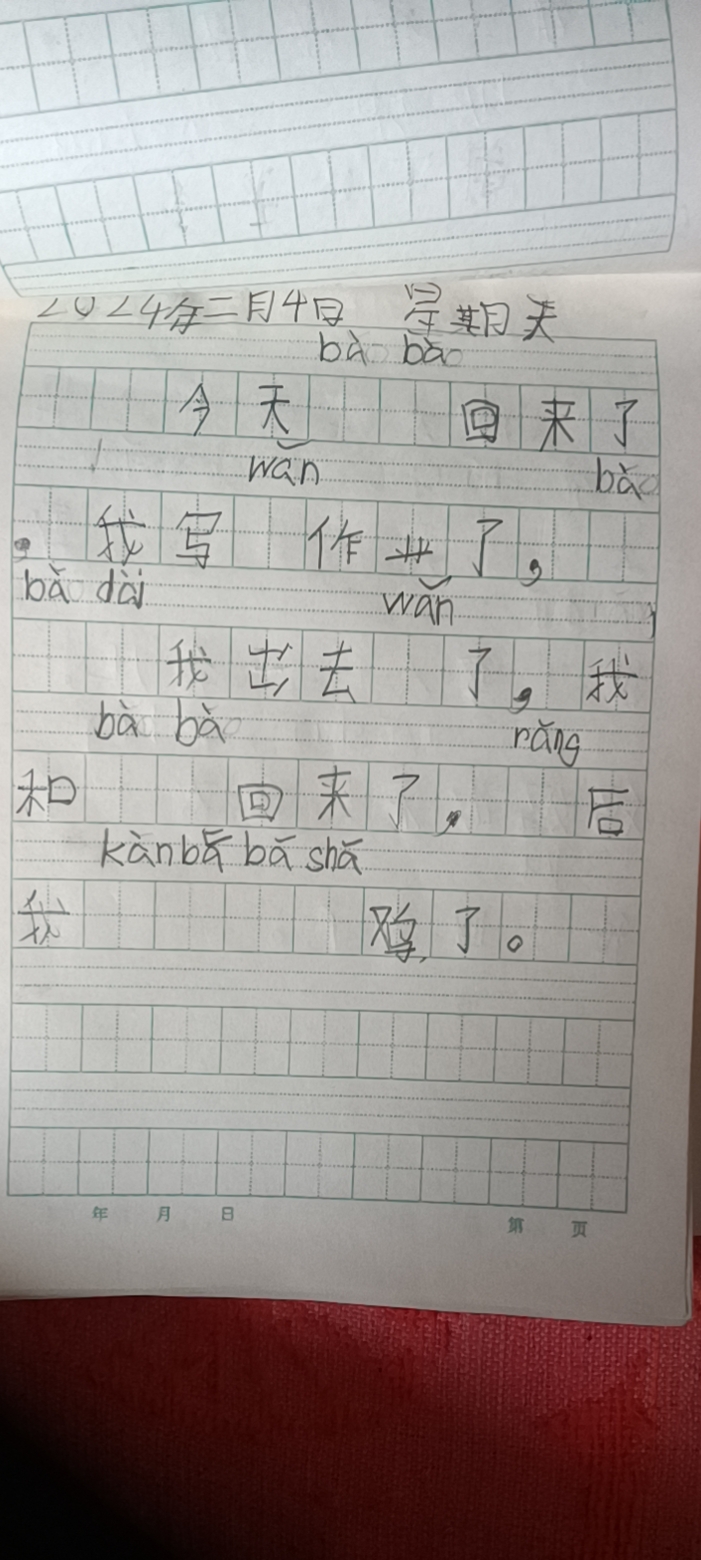 2024年二月4日 星期天
bà bà
今天 回来了
wǎn bǎ
。我写 作业了,
bǎ dài wǎn
我出去 了,我
bà bà rǎng
和 回来了, 后
kàn bǎ bā shā
我 鸡了。
年 月 日 第 页